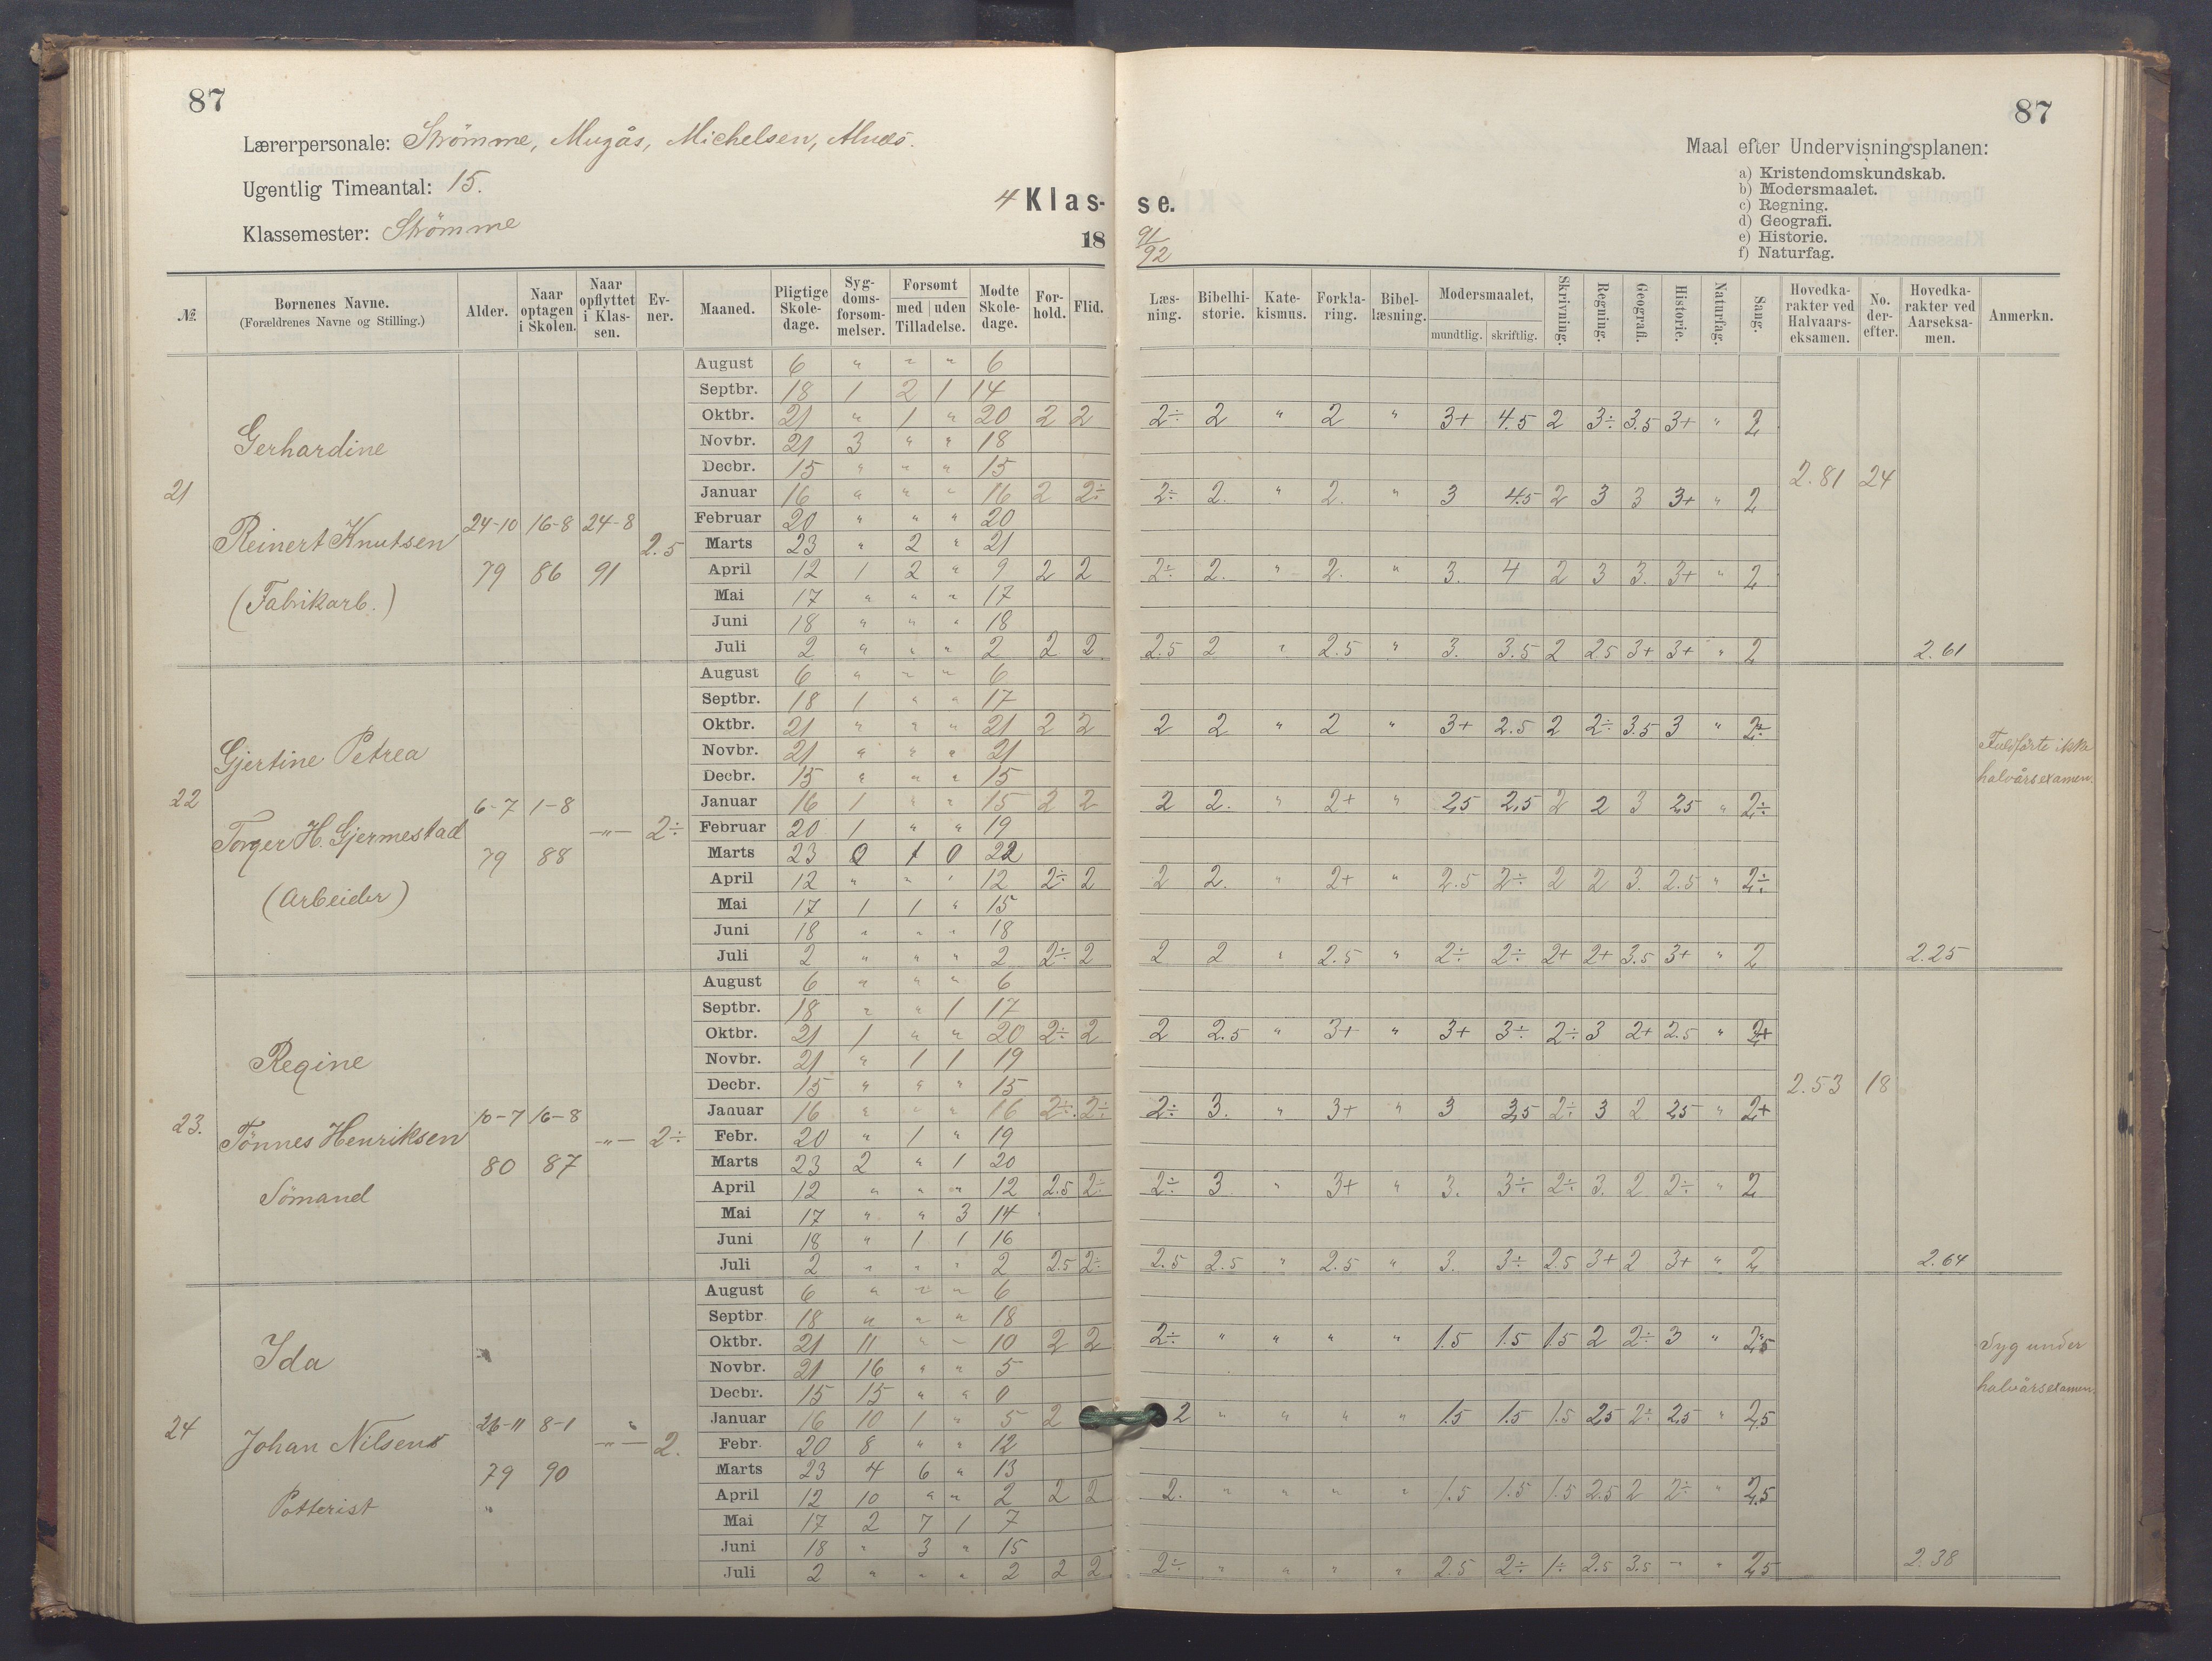 87
87
Lærerpersonale: Strömme, Mugås, Michelsen,
Ugentlig Timeantal: 15.
Klassemester: Strömme
4 Klas-se.
18 91/92
Maal efter Undervisningsplanen:
a) Kristendomskundskab.
b) Modersmaalet.
c) Regning.
d) Geografi.
e) Historie.
f) Naturfag.
№. | Bornenes Navne. (Forældrenes Navne og Stilling.) | Alder. | Naar optagen i Skolen. | Naar opflyttet i Klas-sen. | Ev-ner. | Maaned. | Pligtige Skole-dage. | Syg-doms-forsom-melser. | Forsomt med | uden Tilladelse. | Modte Skole-dage. | For-hold. | Flid. | Læs-ning. | Bibelhi-storie. | Kate-kismus. | Forkla-ring. | Bibel-læsning. | Modersmaalet, mundtlig. | skriftlig. | Skrivning. | Regning. | Geografi. | Historie. | Naturfag. | Sang. | Hovedka-rakter ved Halvaars-eksamen. | No. der-efter. | Hovedka-rakter ved Aarseksa-men. | Anmerkn.
21 Gerhardine
Reinert Knutsen
(Fabrikarb.)
24-10 79 | 16-8 86 | 24-8 91 | 2.5
August 6 " " " 6
Septbr. 18 1 2 1 14
Oktbr. 21 " 1 " 20 2 2 | 2÷ 2 " 2 " 3+ 4.5 2 3÷ 3.5 3+ " 2
Novbr. 21 3 " " 18
Decbr. 15 " " " 15 | 2.81 24
Januar 16 " " " 16 2 2÷ | 2÷ 2. " 2. " 3 4.5 2 3 3 3+ " 2
Februar 20 " " " 20
Marts 23 " 2 " 21
April 12 1 2 " 9 2 2 | 2÷ 2. " 2. " 3. 4 2 3 3. 3+ " 2
Mai 17 " " " 17
Juni 18 " " " 18
Juli 2 " " " 2 2 2 | 2.5 2 " 2.5 " 3. 3.5 2 2.5 3+ 3+ " 2 2.61
22 Gjertine Petrea
Torger H. Gjermestad
(Arbeider)
6-7 79 | 1-8 88 | -"- | 2÷
August 6 " " " 6
Septbr. 18 1 " " 17
Oktbr. 21 " " " 21 2 2 | 2 2 " 2 " 3+ 2.5 2 2÷ 3.5 3 " 2÷
Novbr. 21 " " " 21 | Fuldförte ikke
Decbr. 15 " " " 15 | halvårsexamen.
Januar 16 1 " " 15 2 2 | 2 2. " 2+ " 2,5 2,5 2 2 3 2,5 " 2÷
Februar 20 1 " " 19
Marts 23 0 1 0 22
April 12 " " " 12 2÷ 2 | 2 2. " 2+ " 2.5 2÷ 2 2 3. 2.5 " 2÷
Mai 17 1 1 " 15
Juni 18 " " " 18
Juli 2 " " " 2 2÷ 2 | 2 2 " 2.5 " 2÷ 2÷ 2+ 2+ 3.5 3+ " 2 2.25
23. Regine
Tönnes Henriksen
Sömand
10-7 80 | 16-8 87 | -"- | 2÷
August 6 " " " 6
Septbr. 18 " " 1 17
Oktbr. 21 1 " " 20 2÷ 2 | 2 2.5 " 3+ " 3+ 3÷ 2÷ 3 2+ 2.5 " 2+
Novbr. 21 " 1 1 19
Decbr. 15 " " " 15 | 2.53 18
Januar 16 " " " 16 2÷ 2÷ | 2÷ 3. " 3+ " 3 3,5 2÷ 3 2 2,5 " 2+
Febr. 20 " 1 " 19
Marts 23 2 " 1 20
April 12 " " " 12 2.5 2÷ | 2÷ 3 " 3+ " 3. 3÷ 2÷ 3. 2 2÷ " 2
Mai 17 " " 3 14
Juni 18 " 1 1 16
Juli 2 " " " 2 2.5 2÷ | 2.5 2.5 " 2.5 " 3. 3÷ 2.5 3+ 2 3+ " 2 2.64
24 Ida
Johan Nilsens
Potterist
26-11 79 | 8-1 90 | -"- | 2.
August 6 " " " 6
Septbr 18 " " " 18
Oktbr. 21 11 " " 10 2 2 | 2÷ " " " " 1.5 1.5 1.5 2 2÷ 3 " 2,5
Novbr. 21 16 " " 5 | Syg under
Decbr. 15 15 " " 0 | halvårsexamen.
Januar 16 10 1 " 5 2 | 2 " " " " 1.5 1.5 1.5 2.5 2÷ 2,5 " 2,5
Febr. 20 8 " " 12
Marts 23 4 6 " 13
April 12 10 " " 2 2 2 | 2. " " " " 1.5 1.5 1.5 2.5 2 2÷ " 2,5
Mai 17 2 7 1 7
Juni 18 " 3 " 15
Juli 2 " " " 2 2 2 | 2÷ " " " " 2.5 2÷ 1÷ 2.5 3.5 " " 2,5 2.38